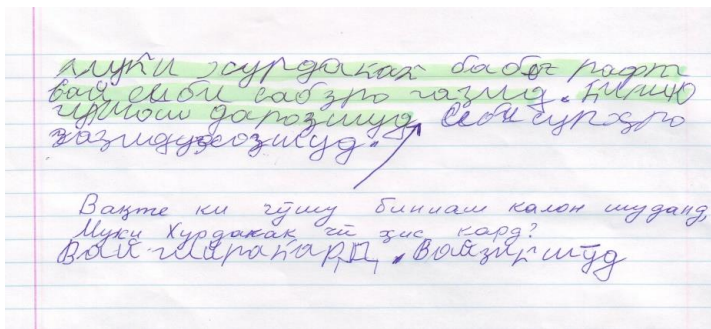 Муки хурдакак ба боғ рафт
вай себи сабзро газид. Бинию
гушош дарозшуд себи сурхро
газидуҳозшуд.
Вақте ки гӯшу биниаш калон шуданд,
Муки Хурдакак чӣ ҳис кард?
Вай гиракард. Вайзиқшуд